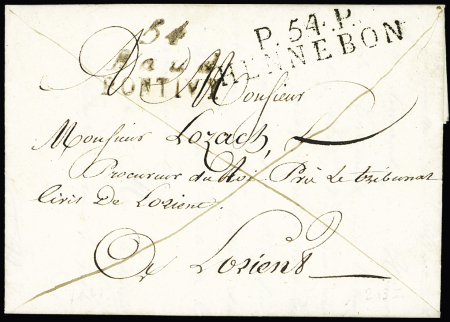 54
PONTIVY
P. 54. P.
HENNEBON
A Monsieur
Monsieur Lozach,
Procureur du Roi Près Le tribunal
Civil De Lorient.
A Lorient